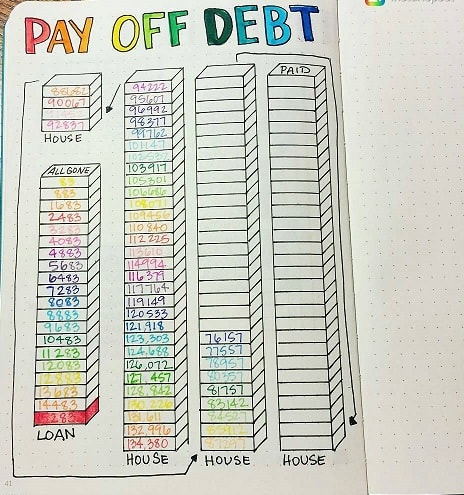 PAY OFF DEBT
88682
90067
92837
HOUSE
ALL GONE
83
883
1683
2483
3283
4083
4883
5683
6483
7283
8083
8883
9683
10483
11283
12083
12883
13683
14483
15283
LOAN
94222
95607
96992
98377
99762
101147
102532
103917
105301
106686
108071
109456
110840
112225
113610
114994
116379
117764
119149
120533
121,918
123,303
124,688
126,072
127,457
128,842
130,226
131,611
132,996
134,380
HOUSE
76157
77557
78957
80357
81757
83142
84527
85912
87297
HOUSE
PAID
HOUSE
41